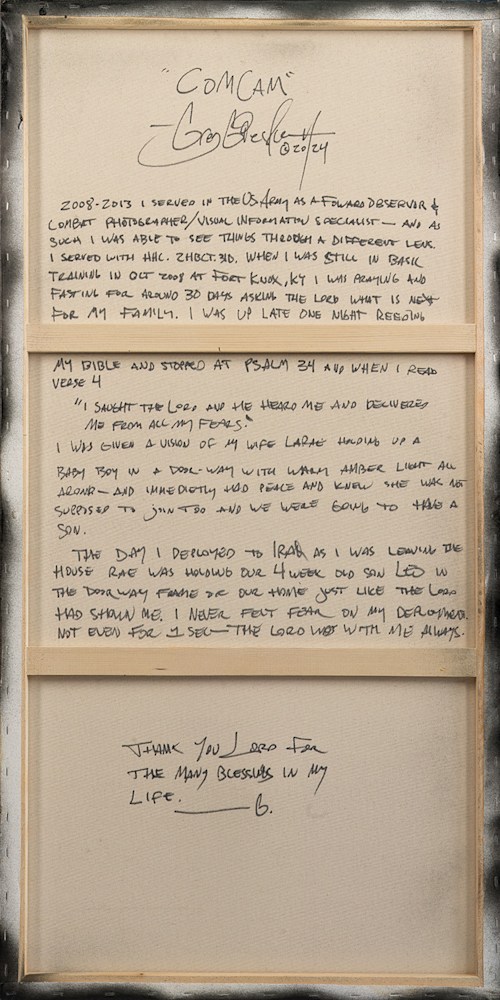 "COMCAM"
©2024
2008-2013 I SERVED IN THE US ARMY AS A FOWARD OBSERVOR &
COMBET PHOTOGRAPHER/VISUAL INFORMATION SPECIALIST — AND AS
SUCH I WAS ABLE TO SEE THINGS THROUGH A DIFFERENT LENS.
I SERVED WITH HHC. 2HBCT. 3ID. WHEN I WAS STILL IN BASIC
TRAINING IN OCT 2008 AT FORT KNOX, KY I WAS PRAYING AND
FASTING FOR AROUND 30 DAYS ASKING THE LORD WHAT IS NEXT
FOR MY FAMILY. I WAS UP LATE ONE NIGHT REEDING
MY BIBLE AND STOPPED AT PSALM 34 AND WHEN I READ
VERSE 4
"I SAUGHT THE LORD AND HE HEARD ME AND DELIVERED
ME FROM ALL MY FEARS."
I WAS GIVEN A VISION OF MY WIFE LARAE HOLDING UP A
BABY BOY IN A DOOR-WAY WITH WARM AMBER LIGHT ALL
AROUND — AND IMMEDIETLY HAD PEACE AND KNEW SHE WAS NOT
SUPPOSED TO JOIN TOO AND WE WERE GOING TO HAVE A
SON.
THE DAY I DEPLOYED TO IRAQ AS I WAS LEAVING THE
HOUSE RAE WAS HOLDING OUR 4 WEEK OLD SON LEO IN
THE DOORWAY FRAME OF OUR HOME JUST LIKE THE LORD
HAD SHOWN ME. I NEVER FELT FEAR ON MY DEPLOYMENT.
NOT EVEN FOR 1 SEC — THE LORD WAS WITH ME ALWAYS.
THANK YOU LORD FOR
THE MANY BLESSINGS IN MY
LIFE. — G.